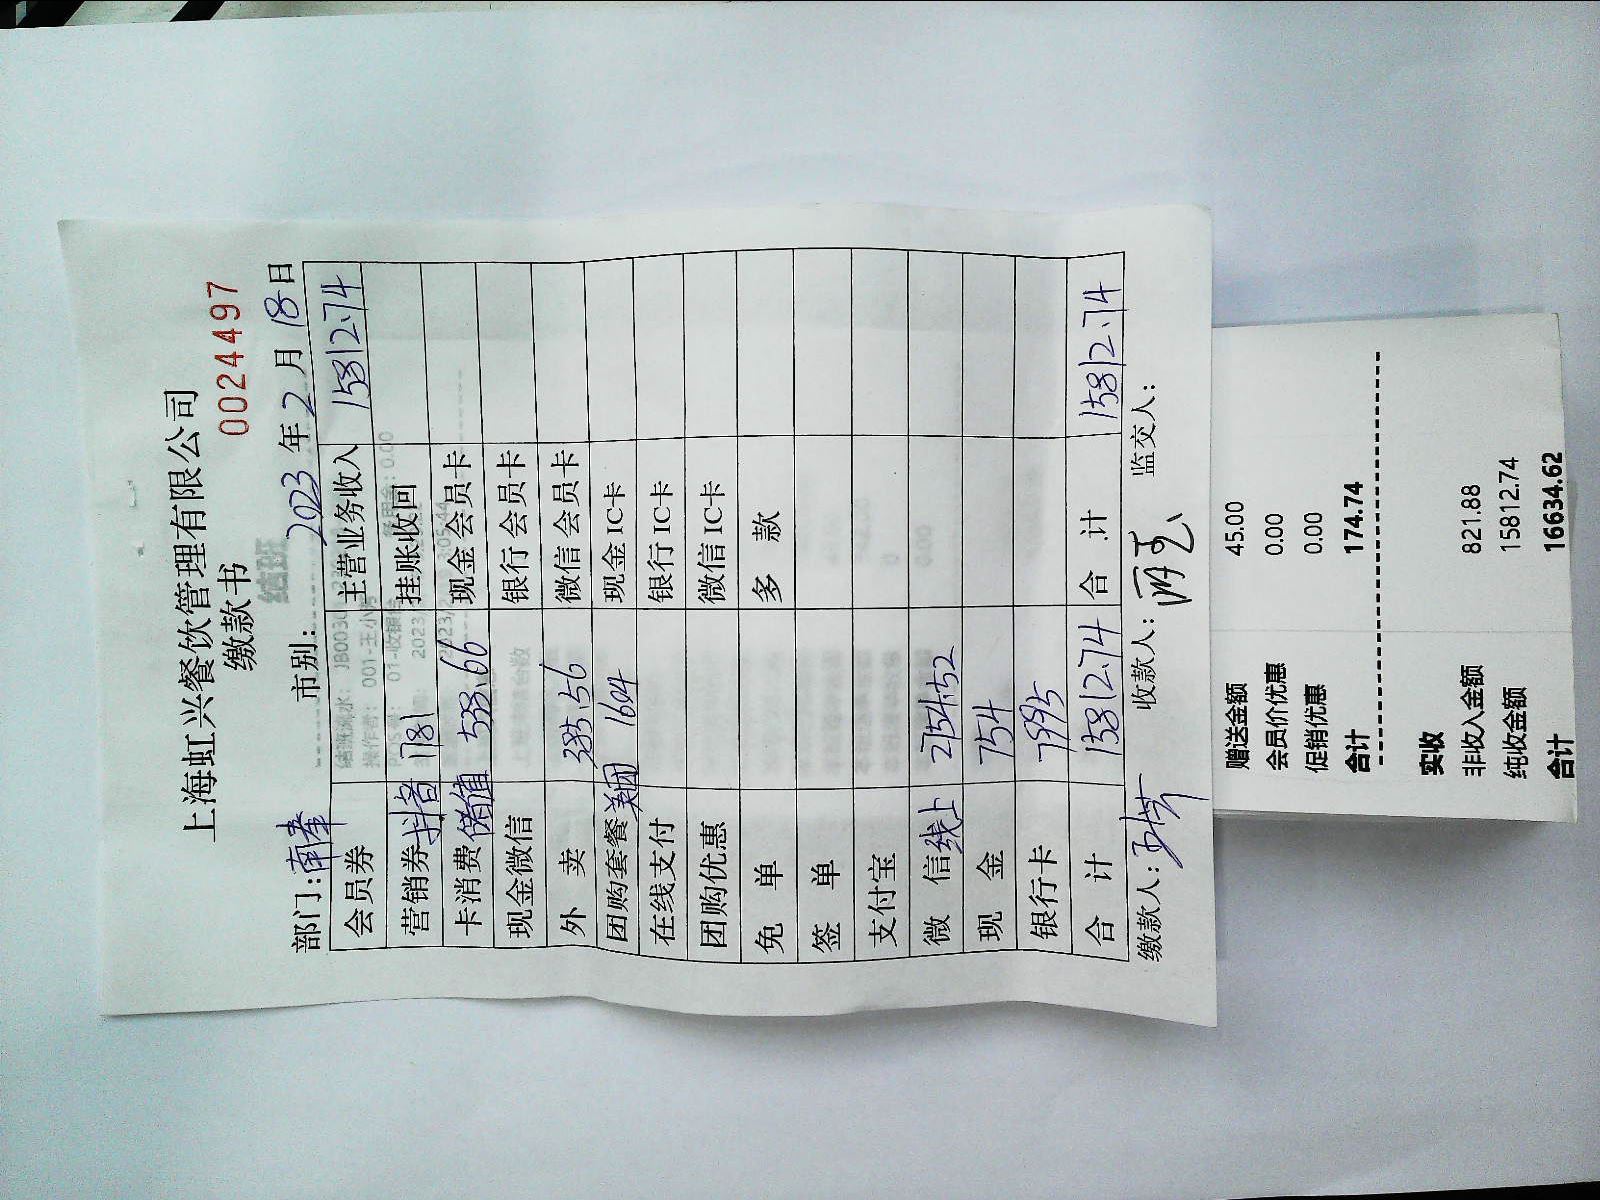 上海虹兴餐饮管理有限公司
缴款书 0024497
部门:南奉 市别: 2023年2月18日
会员券 主营业务收入 15812.74
营销券抖音 1781 挂账收回
卡消费储值 538.66 现金会员卡
现金微信 银行会员卡
外卖 385.56 微信会员卡
团购套餐美团 1604 现金IC卡
在线支付 银行IC卡
团购优惠 微信IC卡
免单 多款
签单
支付宝
微信线上 2754.52
现金 754
银行卡 7995
合计 15812.74 合计 15812.74
缴款人: 收款人: 监交人:
赠送金额 45.00
会员价优惠 0.00
促销优惠 0.00
合计 174.74
实收
非收入金额 821.88
纯收金额 15812.74
合计 16634.62